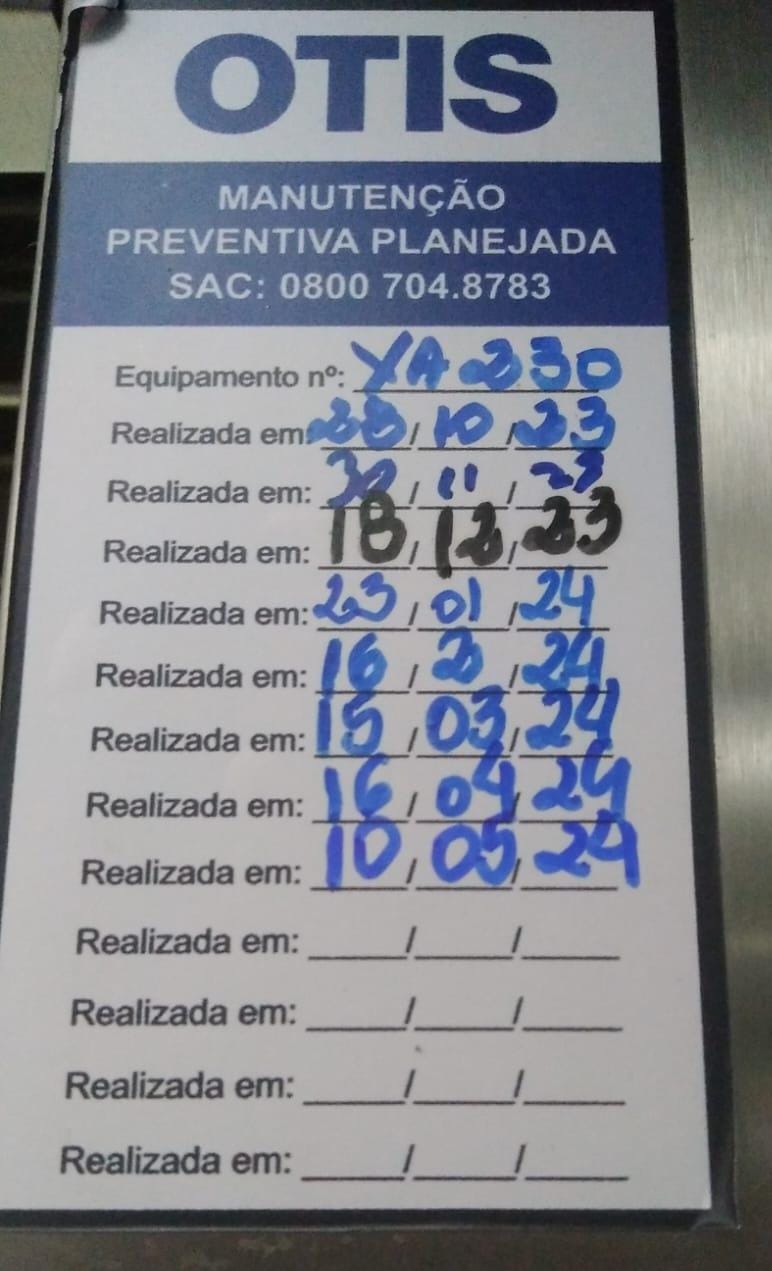 OTIS
MANUTENÇÃO
PREVENTIVA PLANEJADA
SAC: 0800 704.8783
Equipamento nº: YA 230
Realizada em: / 10 / 23
Realizada em: 30 / 11 / 23
Realizada em: 18 / 12 / 23
Realizada em: 23 / 01 / 24
Realizada em: 16 / 2 / 24
Realizada em: 15 / 03 / 24
Realizada em: 16 / 04 / 24
Realizada em: 10 / 05 / 24
Realizada em: ____/____/____
Realizada em: ____/____/____
Realizada em: ____/____/____
Realizada em: ____/____/____